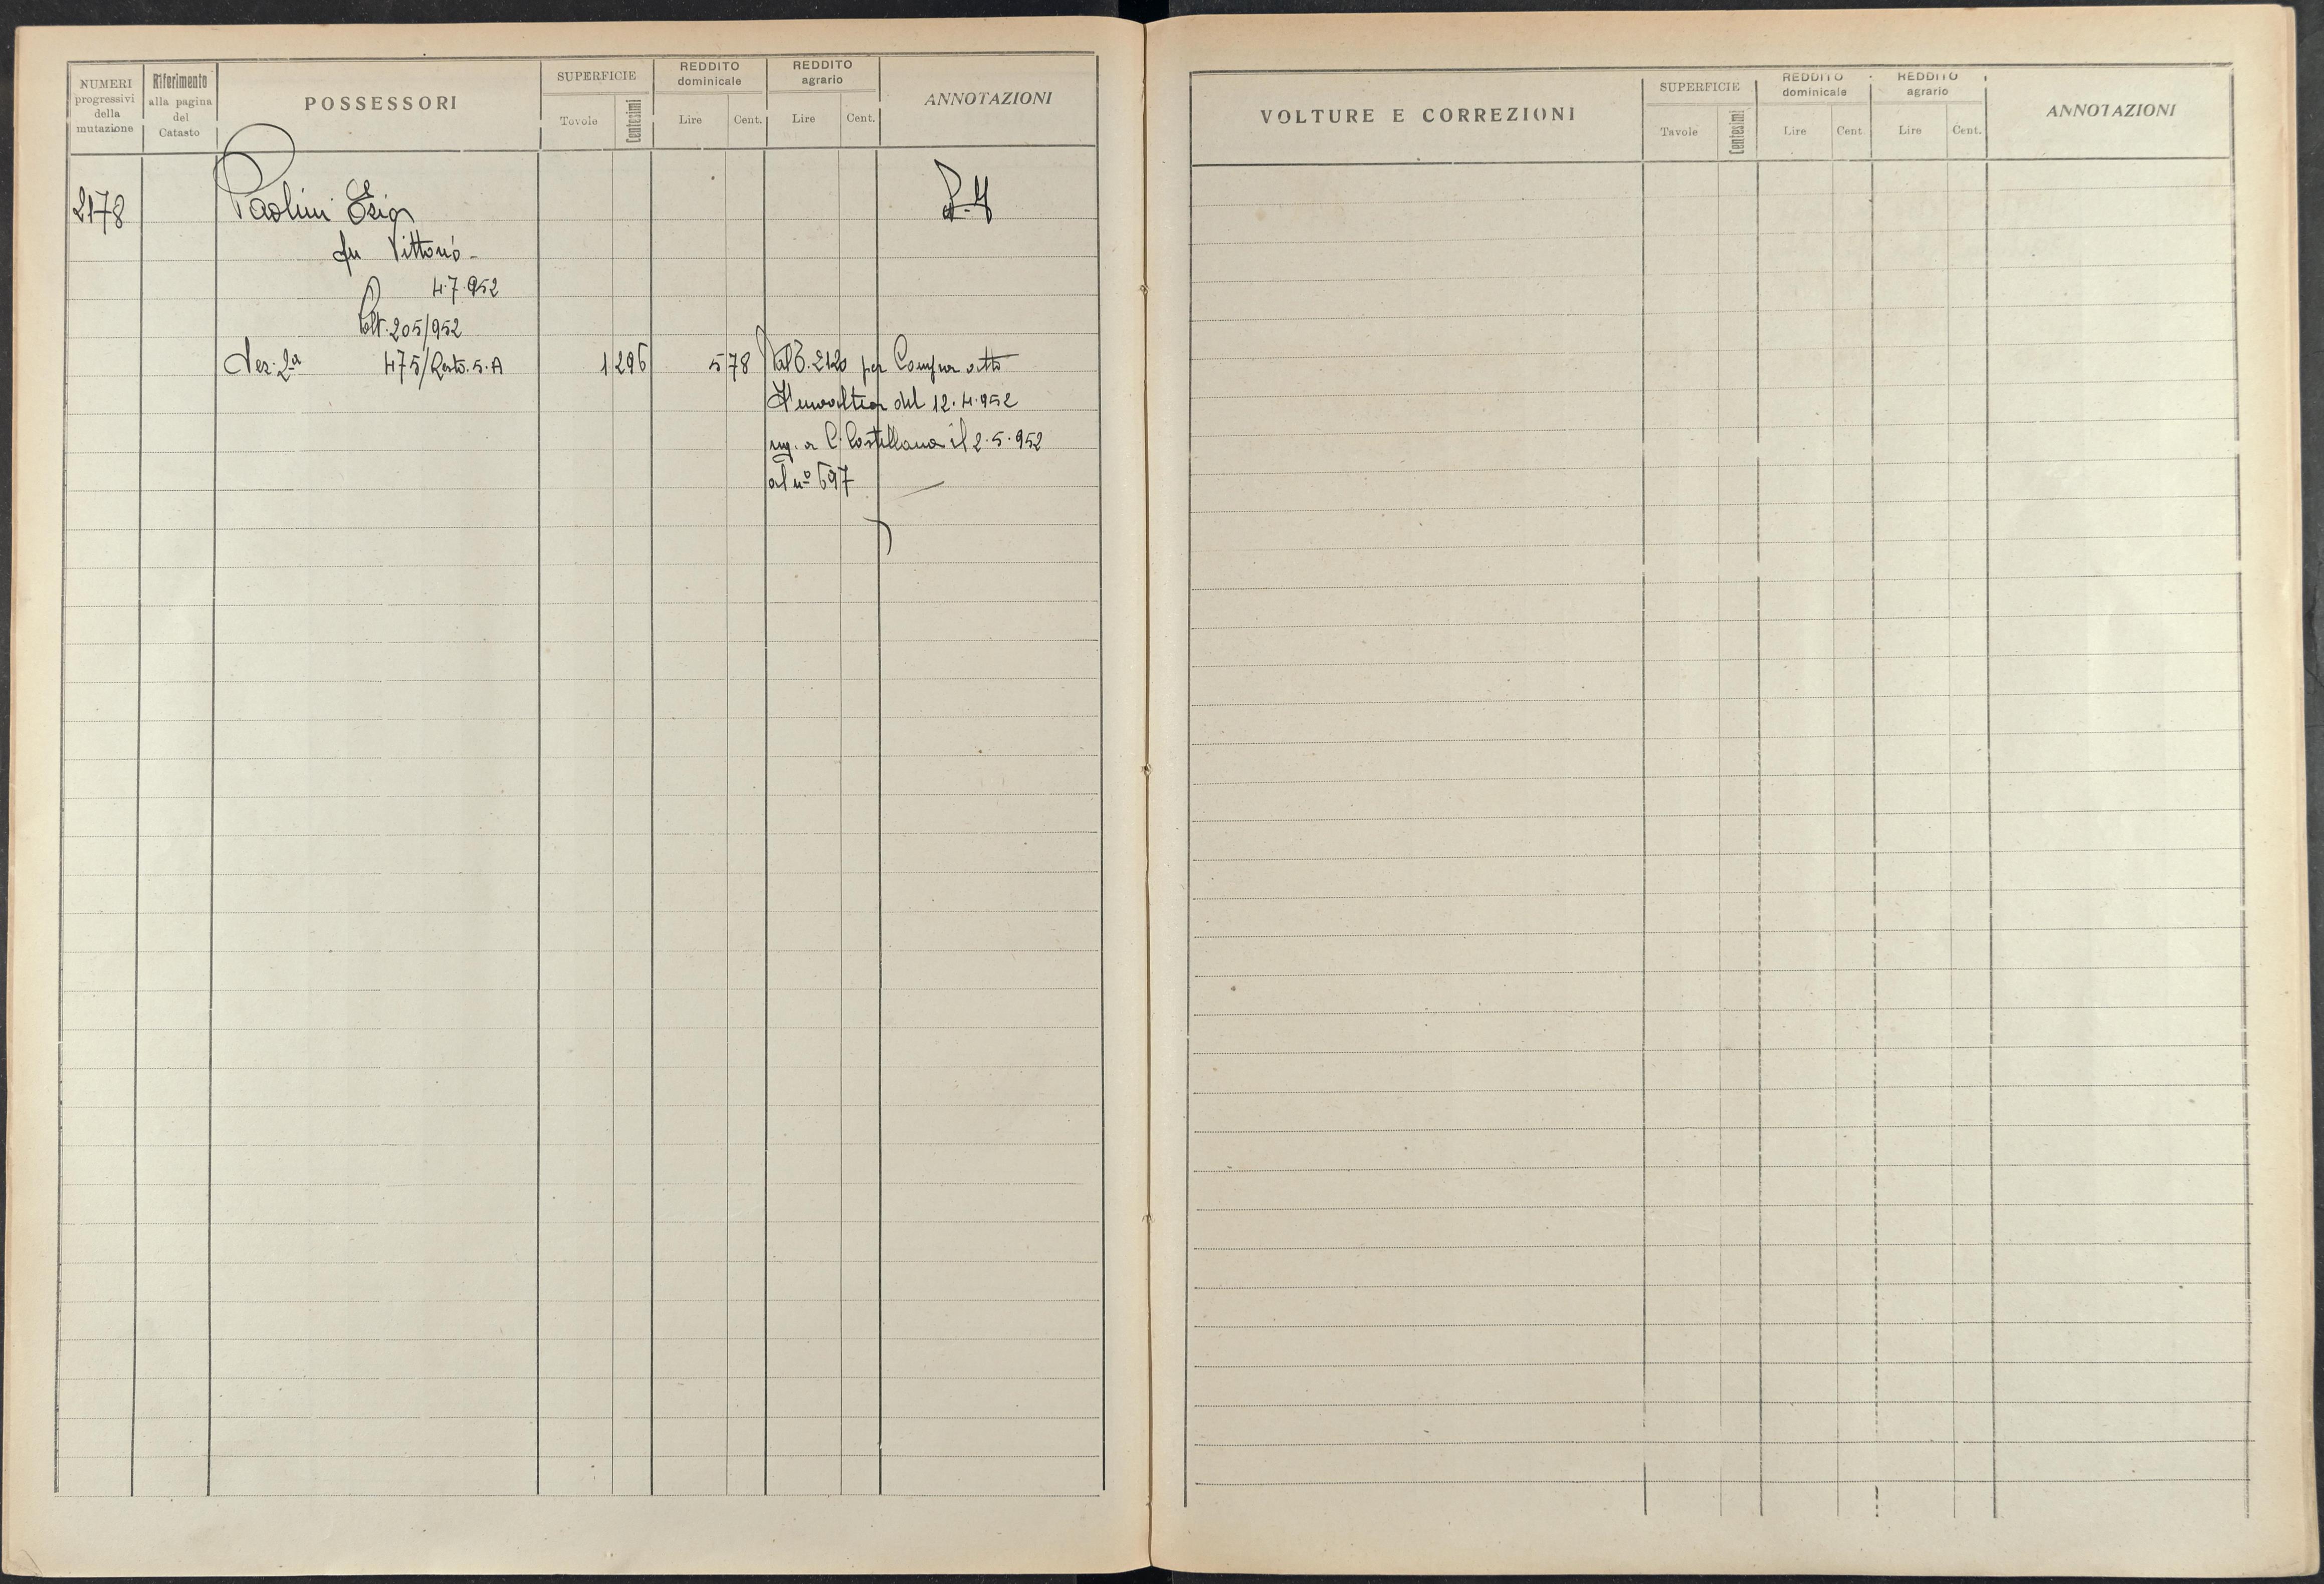 NUMERI
progressivi
della
mutazione
Riferimento
alla pagina
del
Catasto
POSSESSORI
SUPERFICIE
Tavole
Centesimi
REDDITO
dominicale
Lire
Cent.
REDDITO
agrario
Lire
Cent.
ANNOTAZIONI
2178
Paolini
fu Vittorio
4.7.952
Volt. 205/952
Sez. 2a 475/Resto. S. A 1 296 5 78 Dal 2120 per Compra atto
del 12.4.952
reg. a C. Castellana il 2.5.952
al nº 697
VOLTURE E CORREZIONI
SUPERFICIE
Tavole
Centesimi
REDDITO
dominicale
Lire
Cent
REDDITO
agrario
Lire
Cent.
ANNOTAZIONI